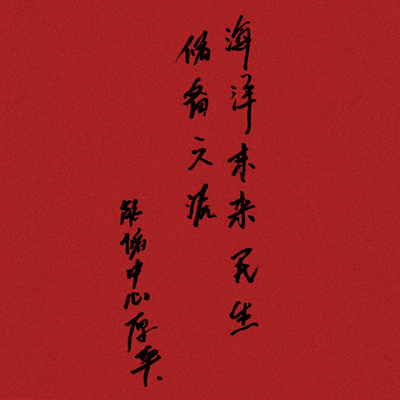 海洋未来民生
储备之源
能储中心